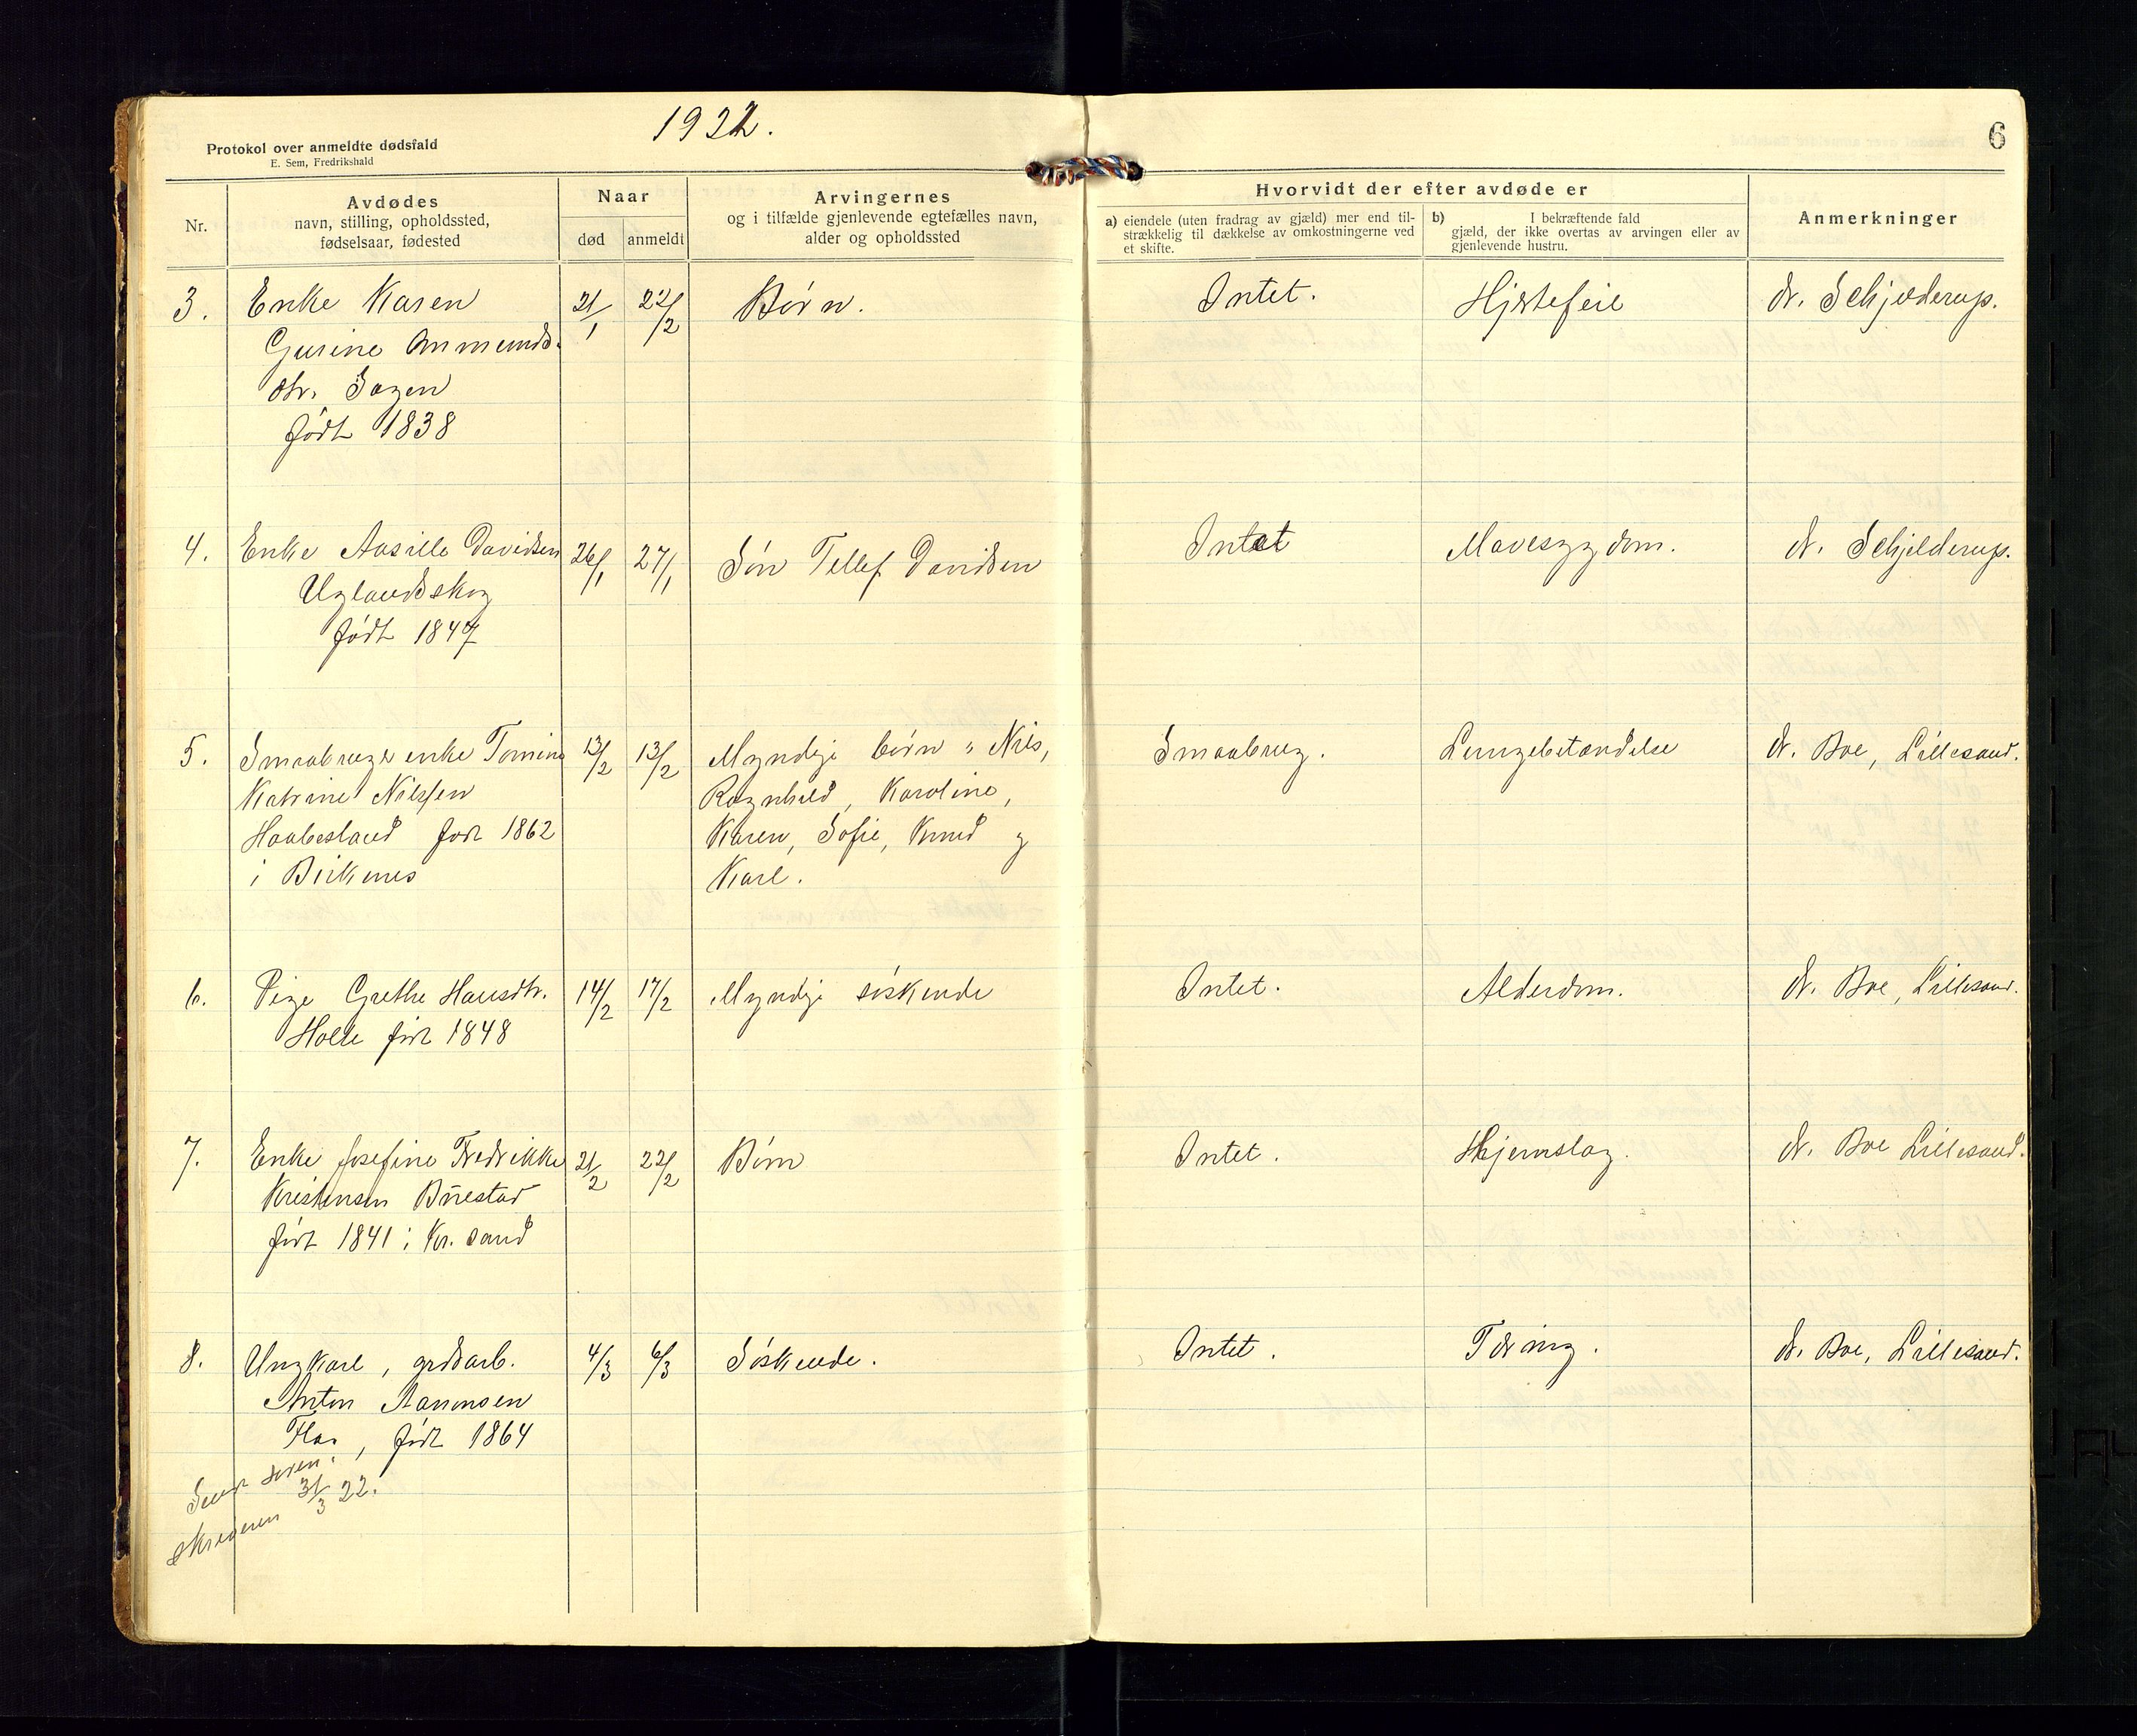 1922.
6
Protokol over anmeldte dødsfald
E. Sem, Fredrikshald
Nr.
Avdødes
navn, stilling, opholdssted,
fødselsaar, fødested
Naar
død
anmeldt
Arvingernes
og i tilfælde gjenlevende egtefælles navn,
alder og opholdssted
Hvorvidt der efter avdøde er
a) eiendele (uten fradrag av gjæld) mer end til-
strækkelig til dækkelse av omkostningerne ved
et skifte.
b) I bekræftende fald
gjæld, der ikke overtas av arvingen eller av
gjenlevende hustru.
Anmerkninger
3. Enke Karen 21/1 22/2 Børn. Intet. Hjertefeil dr. Schjelderup.
Gurine Ommunds-
dtr.
født 1838
4. Enke Aasille Davidsen 26/1 27/1 Søn Tellef Davidsen Intet Mavesygdom. dr. Schjelderup.
Uglandsskog
født 1847
5. Smaabruger enke Tomine 13/2 13/2 Myndige børn: Nils, Smaabrug. Lungebetændelse dr. Boe, Lillesand.
Katrine Nilssen Ragnhild, Karoline,
Haabesland født 1862 Karen, Sofie, Knud og
i Birkenes Karl.
6. Pige Grethe Hansdtr. 14/2 17/2 Myndige søskende Intet. Alderdom. dr. Boe, Lillesand.
Holte født 1848
7. Enke Josefine Fredrikke 21/2 22/2 Børn Intet. Hjernslag. dr. Boe Lillesand.
Kristensen
født 1841 i Kr. sand
8. Ungkarl, grdsarb. 4/3 6/3 Søskende. Intet. Tæring. dr. Boe, Lillesand.
Anton Aanonsen
født 1864
Sendt soren-
skriveren 31/3 22.